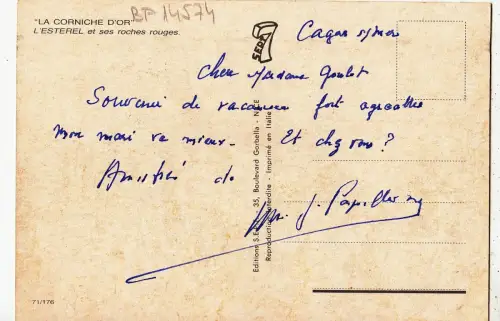 "LA CORNICHE D'OR"
L'ESTEREL et ses roches rouges.
BP 14574
SEPT
Cagnes s/mer
Chère Madame Goulet
Souvenir de vacances fort agréable
Mon mari va mieux - Et chez vous ?
Amitiés de
J.
Editions S.E. 35, Boulevard Gorbella - NICE
Reproduction interdite - Imprimé en Italie
71/176